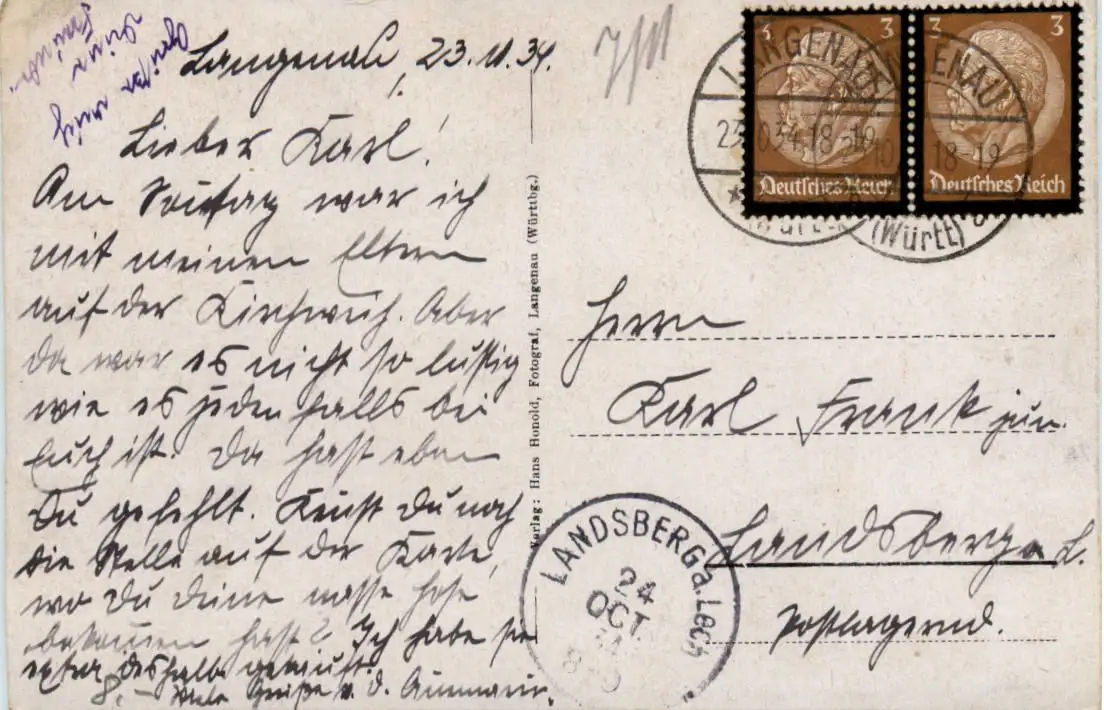 Langenau, 23.10.34.
Lieber Karl!
Am Sonntag war ich
mit meinen Eltern
auf der Kirchweih. Aber
da war es nicht so lustig
wie es jedenfalls bei
Euch ist. Da hast eben
Du gefehlt. Kennst Du noch
die Stelle auf der Karte,
wo Du deine nasse Hose
bekommen hast? Ich habe sie
extra deshalb gekauft.
Viele Grüße v. d.
Verlag: Hans Honold, Fotograf, Langenau (Württbg.)
3 3 3
Deutsches Reich Deutsches Reich
LANGENAU LANGENAU
23.10.34.18-19 18-19
(Württ)
Herrn
Karl Frank jun.
Landsberg a. L.
Postlagernd.
LANDSBERG a. Lech
24
OCT.